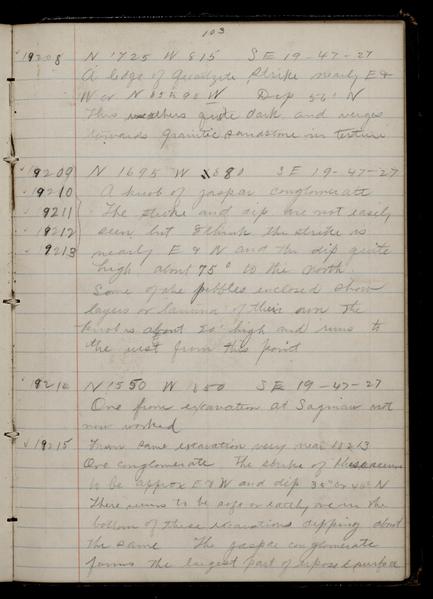 103
19208 N 1725 W 815 SE 19-47-27
A ledge of Quartzite Strike nearly E &
W or N 85 W Dip 56° N
This weathers quite dark and verges
towards granitic sandstone in texture
19209 N 1695 W 680 SE 19-47-27
19210 A knob of jaspar conglomerate
19211 The strike and dip are not easily
19212 seen but I think the strike is
19213 nearly E & W and the dip quite
high about 75° to the north.
Some of the pebbles enclosed show
layers or lamina of their own The
knob is about 20' high and runs to
the west from this point
19214 N 1550 W 1850 SE 19-47-27
One from excavation at Saginaw not
now worked
19215 From same excavation very near
Ore conglomerate The strike of
to be approx E & W and dip 35° or 40° N
There seems to be ore in the
bottom of these excavations dipping about
the same The jaspar conglomerate
forms the largest part of exposed surface